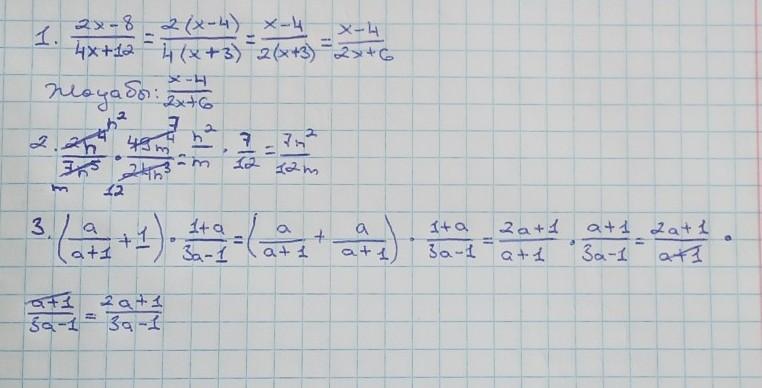 1. (2x-8)/(4x+12) = 2(x-4)/4(x+3) = (x-4)/2(x+3) = (x-4)/(2x+6)
Жауабы: (x-4)/(2x+6)
2. 2n⁴/7n⁵ · 49m⁴/24n³ = n²/m · 7/12 = 7n²/12m
n² 7 m 12
3. (a/(a+1) + 1) · (1+a)/(3a-1) = (a/(a+1) + a/(a+1)) · (1+a)/(3a-1) = (2a+1)/(a+1) · (a+1)/(3a-1) = (2a+1)/(a+1) ·
(a+1)/(3a-1) = (2a+1)/(3a-1)